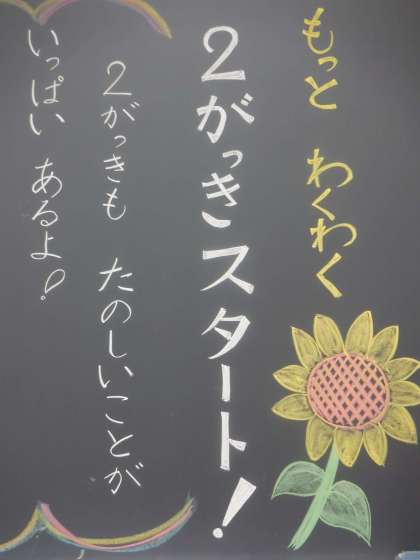 もっと わくわく
２がっきスタート！
２がっきも たのしいことが
いっぱい あるよ！